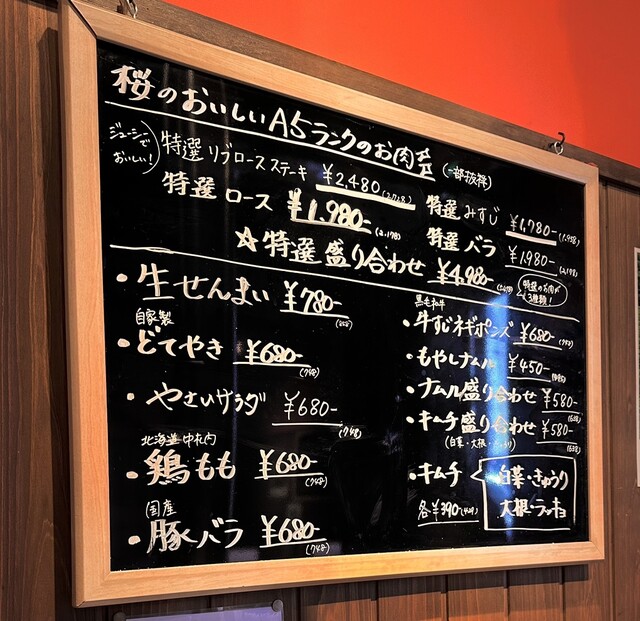 桜のおいしいA5ランクのお肉〆 (一部抜粋)
ジューシーで
おいしい!
特選 リブロースステーキ ¥2,480 (2,728)
特選 みすじ ¥1,780- (1,958)
特選 ロース ¥1,980- (2,178)
特選 バラ ¥1,980- (2,178)
☆特選 盛り合わせ ¥4,980-
特選のお肉が
3種類!
・生せんまい ¥780- (858)
自家製
・どてやき ¥680- (748)
・やさいサラダ ¥680- (748)
北海道中札内
・鶏もも ¥680- (748)
国産
・豚バラ ¥680- (748)
黒毛和牛
・牛すじネギポンズ ¥680-
・もやしナムル ¥450- (495)
・ナムル盛り合わせ ¥580- (638)
・キムチ盛り合わせ ¥580- (638)
(白菜・大根・きゅうり)
・キムチ 白菜・きゅうり
各¥390 (429) 大根・ラッキョ